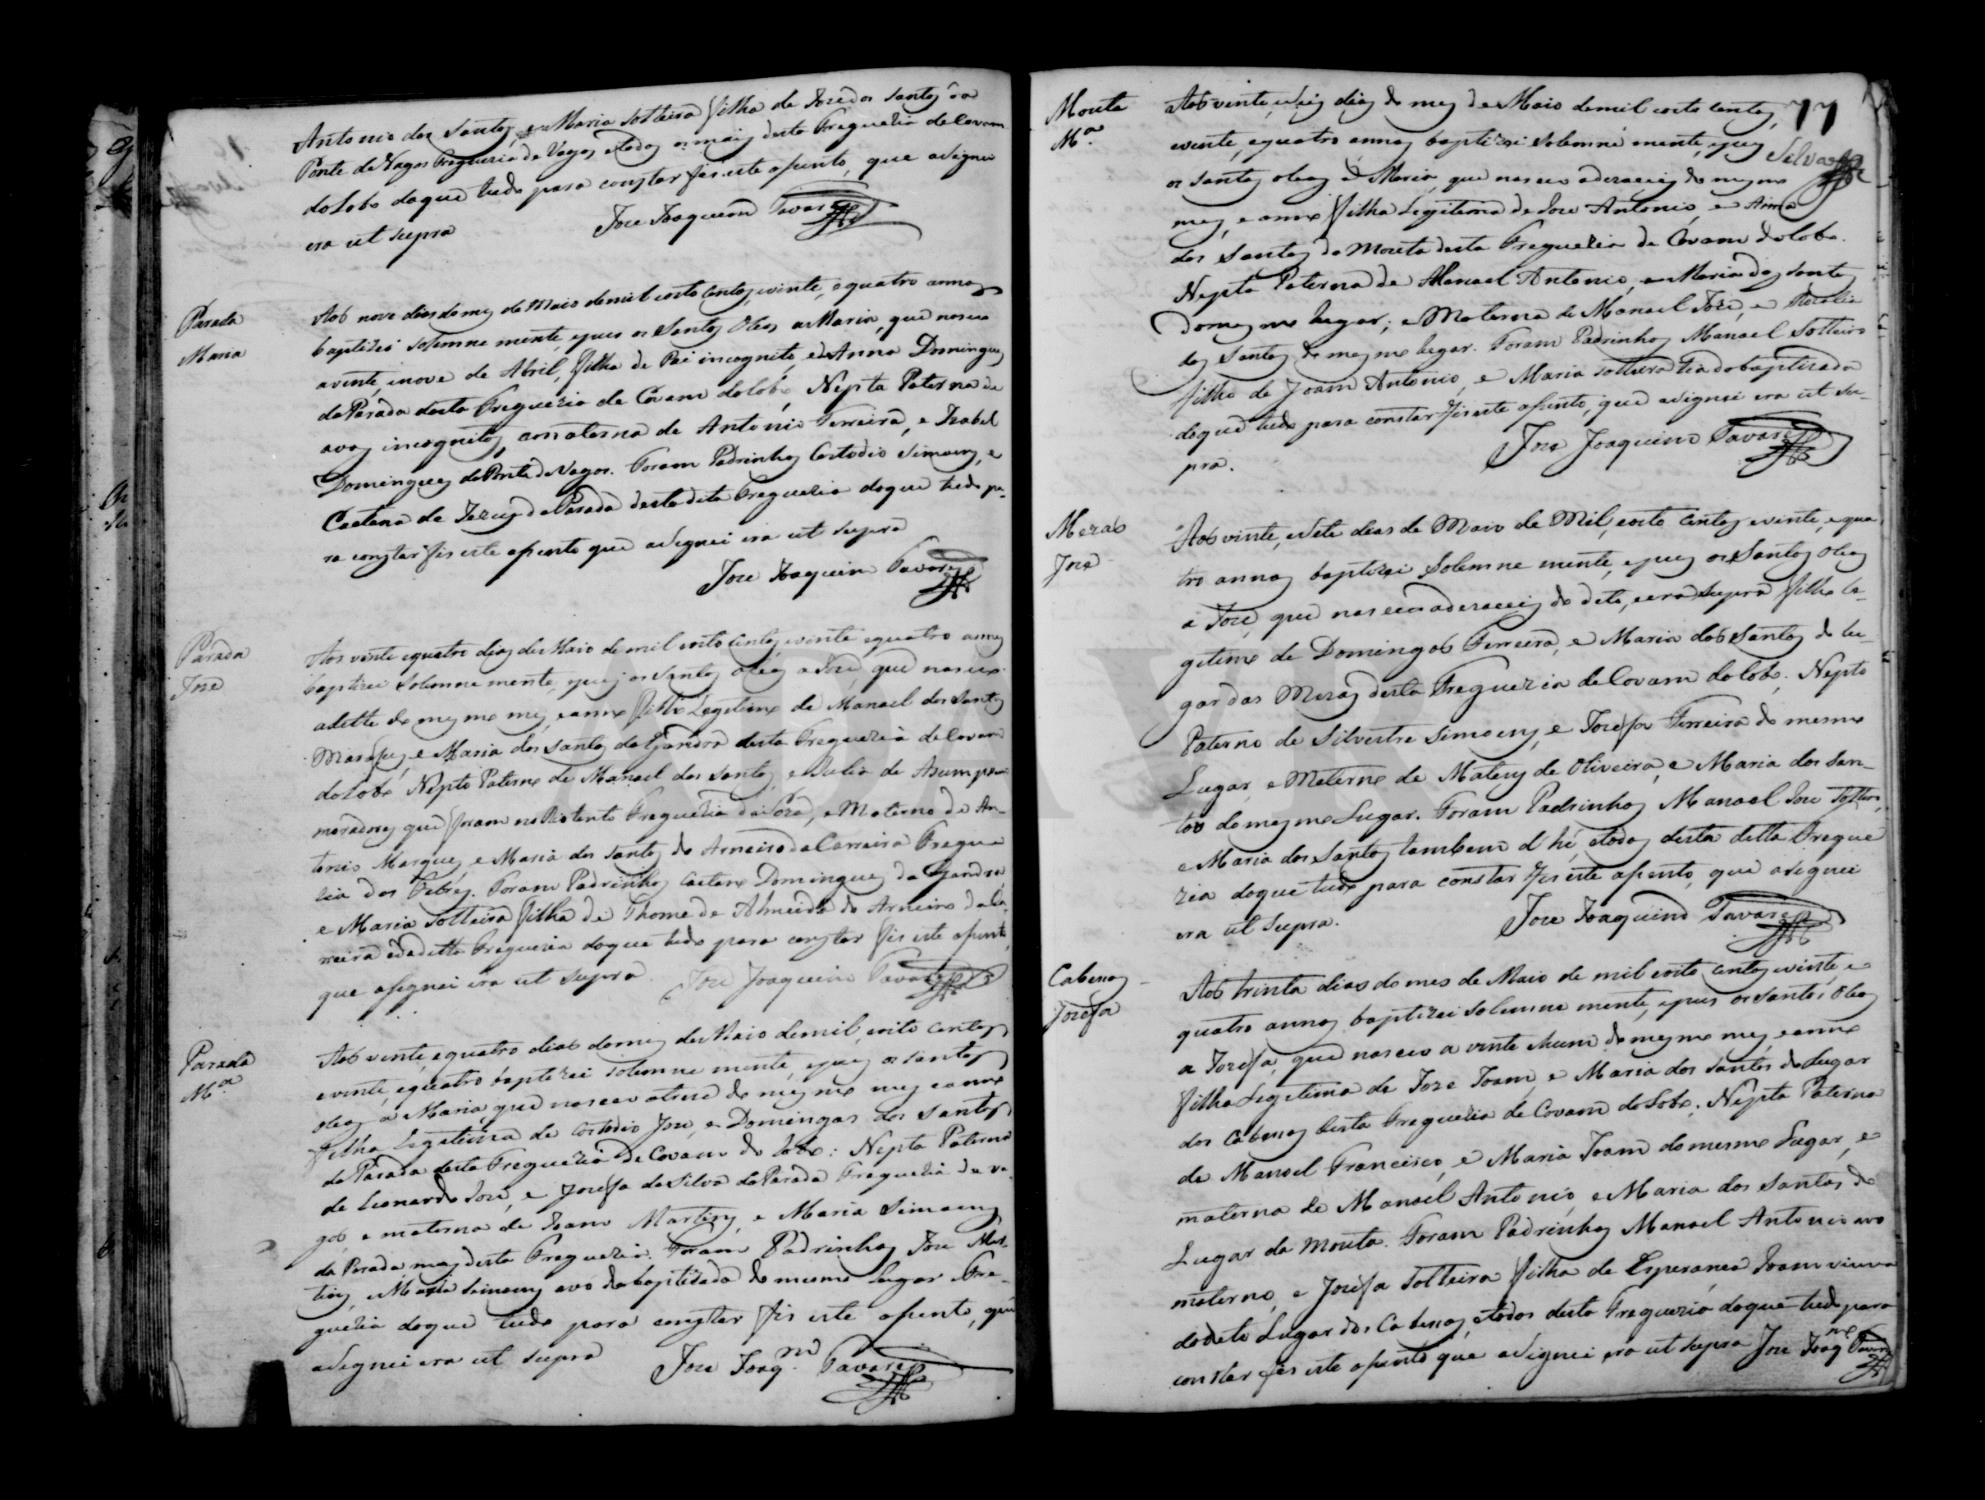 Antonio dos Santos, e Maria solteira filha de Joze dos Santos da
Ponte de Vagos Freguezia de Vagos, e todos os mais desta Freguezia de Covam
do Lobo doque tudo para constar fis este asento, que asignei
era ut supra Joze Joaquim Tavares
Parada
Maria
Aos nove dias do mes de Maio de mil oito centos, e vinte, e quatro annos
baptizei solemne mente, e pus os Santos Oleos a Maria, que nasceo
a vinte, e nove de Abril, filha de Pai incognito, e de Anna Domingues
da Parada desta Freguezia de Covam do lobo, Nepta Paterna de
avos incognitos, e materna de Antonio Ferreira, e Izabel
Domingues da Ponte de Vagos. Foram Padrinhos Costodio Simoens, e
Caetana de Jezus da Parada desta dita Freguezia doque tudo pa-
ra constar fis este asento que asignei era ut supra
Joze Joaquim Tavares
Parada
Joze
Aos vinte e quatro dias de Maio de mil oito centos, e vinte e quatro annos
baptizei solemne mente, e pus os santos oleos a Joze, que nasceo
a dette do mesmo mes, e anno filho Legitimo de Manoel dos Santos
e Maria dos Santos da Gandra desta Freguezia de Covam
do Lobo, Nepto Paterno de Manoel dos Santos, e de Asumpsam
moradores que foram no Freguezia da e Materno de An-
tonio Marques, e Maria dos Santos do Arneiro da Carreira Fregue
zia dos Febres. Foram Padrinhos Caetano Domingues da Gandra
e Maria solteira filha de Thome de Almeida do Arneiro da Ca-
rreira e da ditta Freguezia doque tudo para constar fis este asento
que asignei era ut supra. Joze Joaquim Tavares
Parada
M.ª
Aos vinte, e quatro dias do mes de Maio de mil, oito centos
e vinte, e quatro baptizei solemne mente, e pus os santos
oleos a Maria, que nasceo a treze do mesmo mes e anno
filha Legitima de Costodio Joze, e Domingas dos Santos
da Parada desta Freguezia de Covam do Lobo: Nepta Paterna
de Leonardo Joze, e Josefa da Silva da Parada Freguezia de Va-
gos, e materna de Joam Martins, e Maria Simoens
da Parada mas desta Freguezia. Foram Padrinhos Joze Mar-
tins, e Maria Simoens avó da baptizada do mesmo lugar e Fre-
guezia doque tudo para constar fis este asento, que
asignei era ut supra Joze Joaq.m Tavares
77
Silva
Mouta
M.ª
Aos vinte, e seis dias do mes de Maio de mil oito centos,
e vinte, e quatro annos baptizei solemne mente, e pus
os santos oleos á Maria, que nasceo a dezaceis do mesmo
mes, e anno filha Legitima de Joze Antonio, e Anna
dos Santos da Mouta desta Freguezia de Covam do lobo.
Nepta Paterna de Manoel Antonio, e Maria dos Santos
do mesmo lugar; e Materna de Manoel Joze, e Rozalia
dos Santos do mesmo lugar. Foram Padrinhos Manoel solteiro
filho de Joam Antonio, e Maria solteira tia da baptizada
doque tudo para constar fis este asento, que asignei era ut su-
pra. Joze Joaquim Tavares
Mezas
Joze
Aos vinte, e sete dias de Maio de Mil, e oito centos e vinte, e qua
tro annos baptizei solemne mente, e pus os Santos Oleos
a Joze, que nasceo a dezaceis do dito, e era supra filho Le-
gitimo de Domingos Ferreira, e Maria dos Santos do lu-
gar das Mezas desta Freguezia de Covam do lobo, Nepto
Paterno de Silvestre Simoens, e Josefa Ferreira do mesmo
Lugar, e Materno de Mateus de Oliveira, e Maria dos San-
tos do mesmo Lugar. Foram Padrinhos Manoel Joze solteiro,
e Maria dos Santos tambem d'hi, e todos desta ditta Fregue
zia doque tudo para constar fis este asento, que asignei
era ut supra. Joze Joaquim Tavares
Cabesos
Josefa
Aos trinta dias do mes de Maio de mil oito centos e vinte, e
quatro annos baptizei solemne mente, e pus os santos oleos
a Josefa, que nasceo a vinte e hum do mesmo mes, e anno
filha Legitima de Joze Joam, e Maria dos Santos do Lugar
dos Cabesos desta Freguezia de Covam do Lobo; Nepta Paterna
de Manoel Francisco, e Maria Joam do mesmo Lugar, e
materna de Manoel Antonio, e Maria dos Santos do
Lugar da Mouta. Foram Padrinhos Manoel Antonio avo
materno, e Josefa solteira filha de Esperança Joam viuva
do dito Lugar dos Cabesos, e todos desta Freguezia doque tudo para
constar fis este asento que asignei era ut supra Joze Joaq.m Tavares